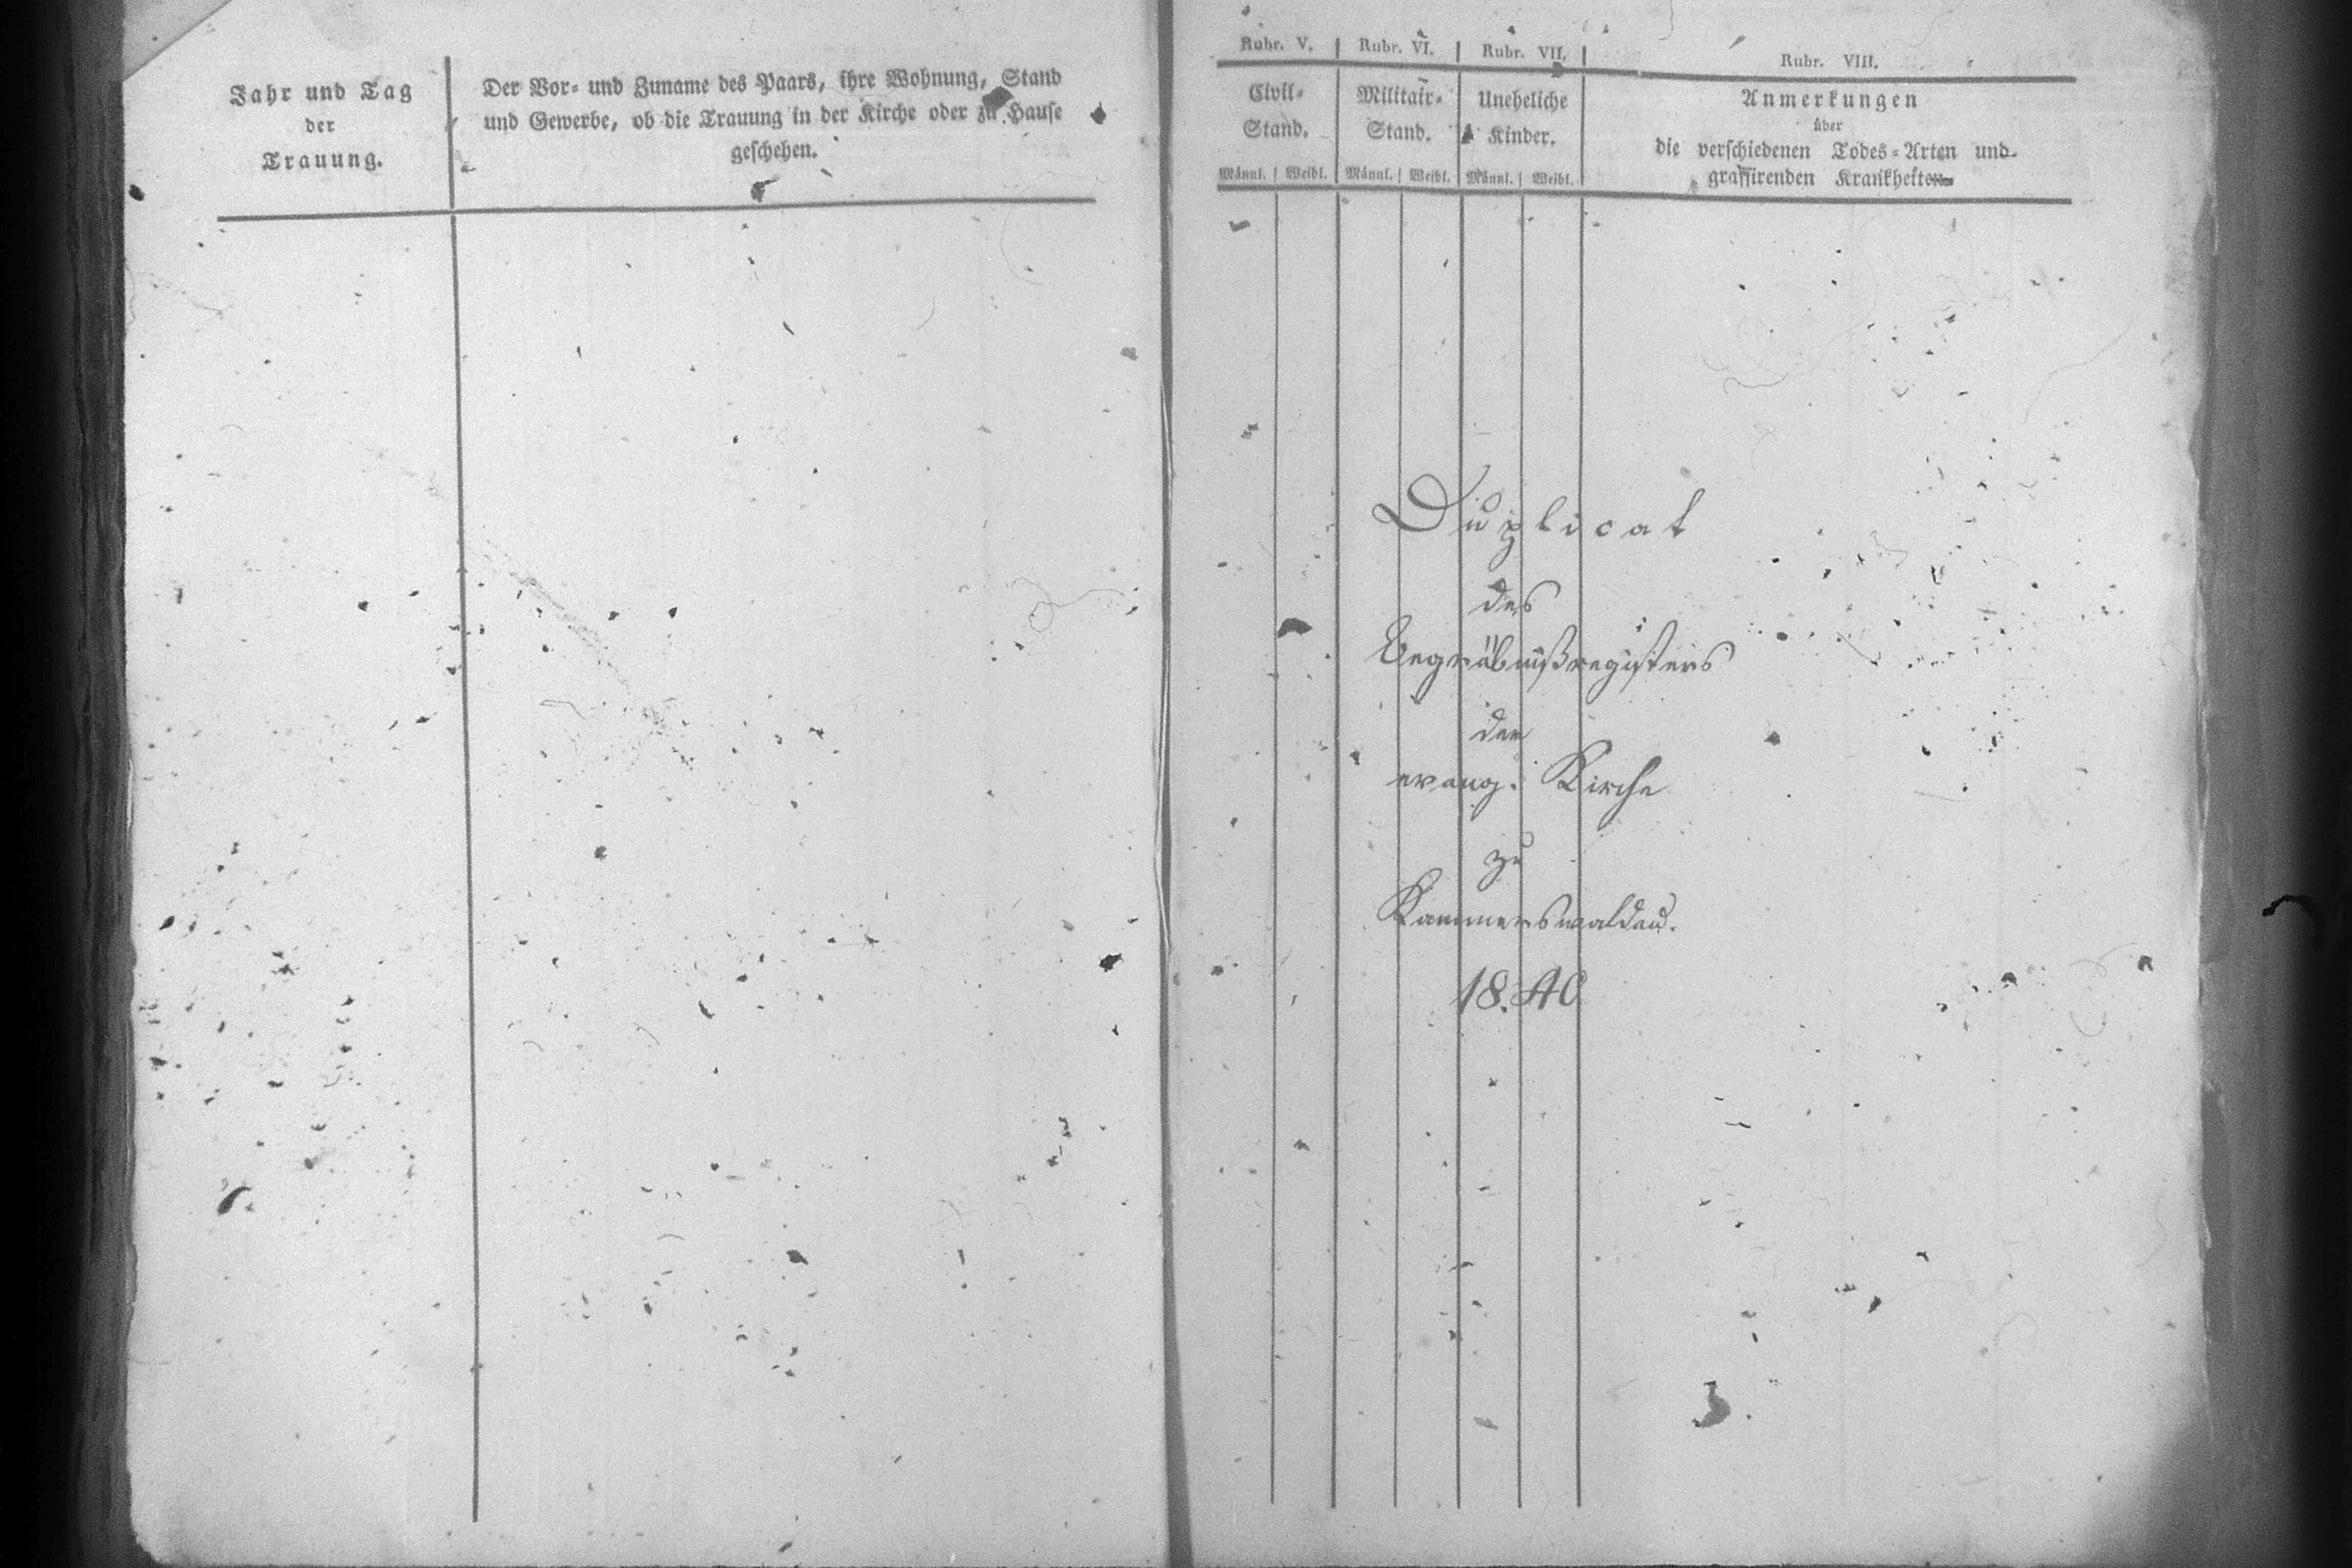 Jahr und Tag
der
Trauung.
Der Vor- und Zuname des Paars, ihre Wohnung, Stand
und Gewerbe, ob die Trauung in der Kirche oder zu Hause
geschehen.
Rubr. V.
Rubr. VI.
Rubr. VII.
Rubr. VIII.
Civil-
Stand.
Militair-
Stand.
Uneheliche
Kinder.
Anmerkungen
über
die verschiedenen Todes-Arten und
grassirenden Krankheiten
Männl. Weibl. Männl. Weibl. Männl. Weibl.
Duplicat
des
Begräbnißregisters
der
evang. Kirche
zu
Kammerswaldau.
18.40